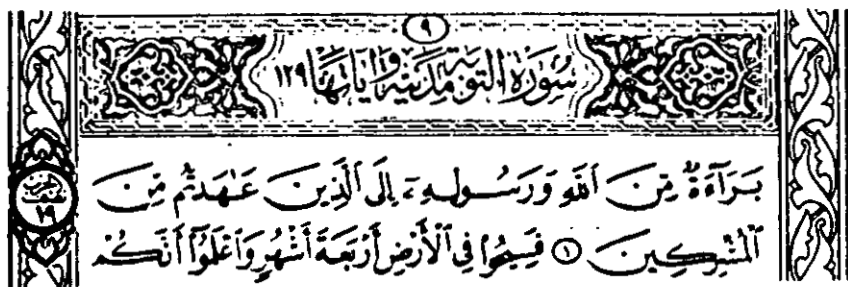 ٩
سُورَةُ التَّوبَةِ مَدَنِيَّة وَآيَاتُهَا ١٢٩
بَرَآءَةٌ مِّنَ ٱللَّهِ وَرَسُولِهِۦٓ إِلَى ٱلَّذِينَ عَٰهَدتُّم مِّنَ
ٱلْمُشْرِكِينَ ١ فَسِيحُوا۟ فِى ٱلْأَرْضِ أَرْبَعَةَ أَشْهُرٍ وَٱعْلَمُوٓا۟ أَنَّكُمْ
نصف
الحزب
١٩